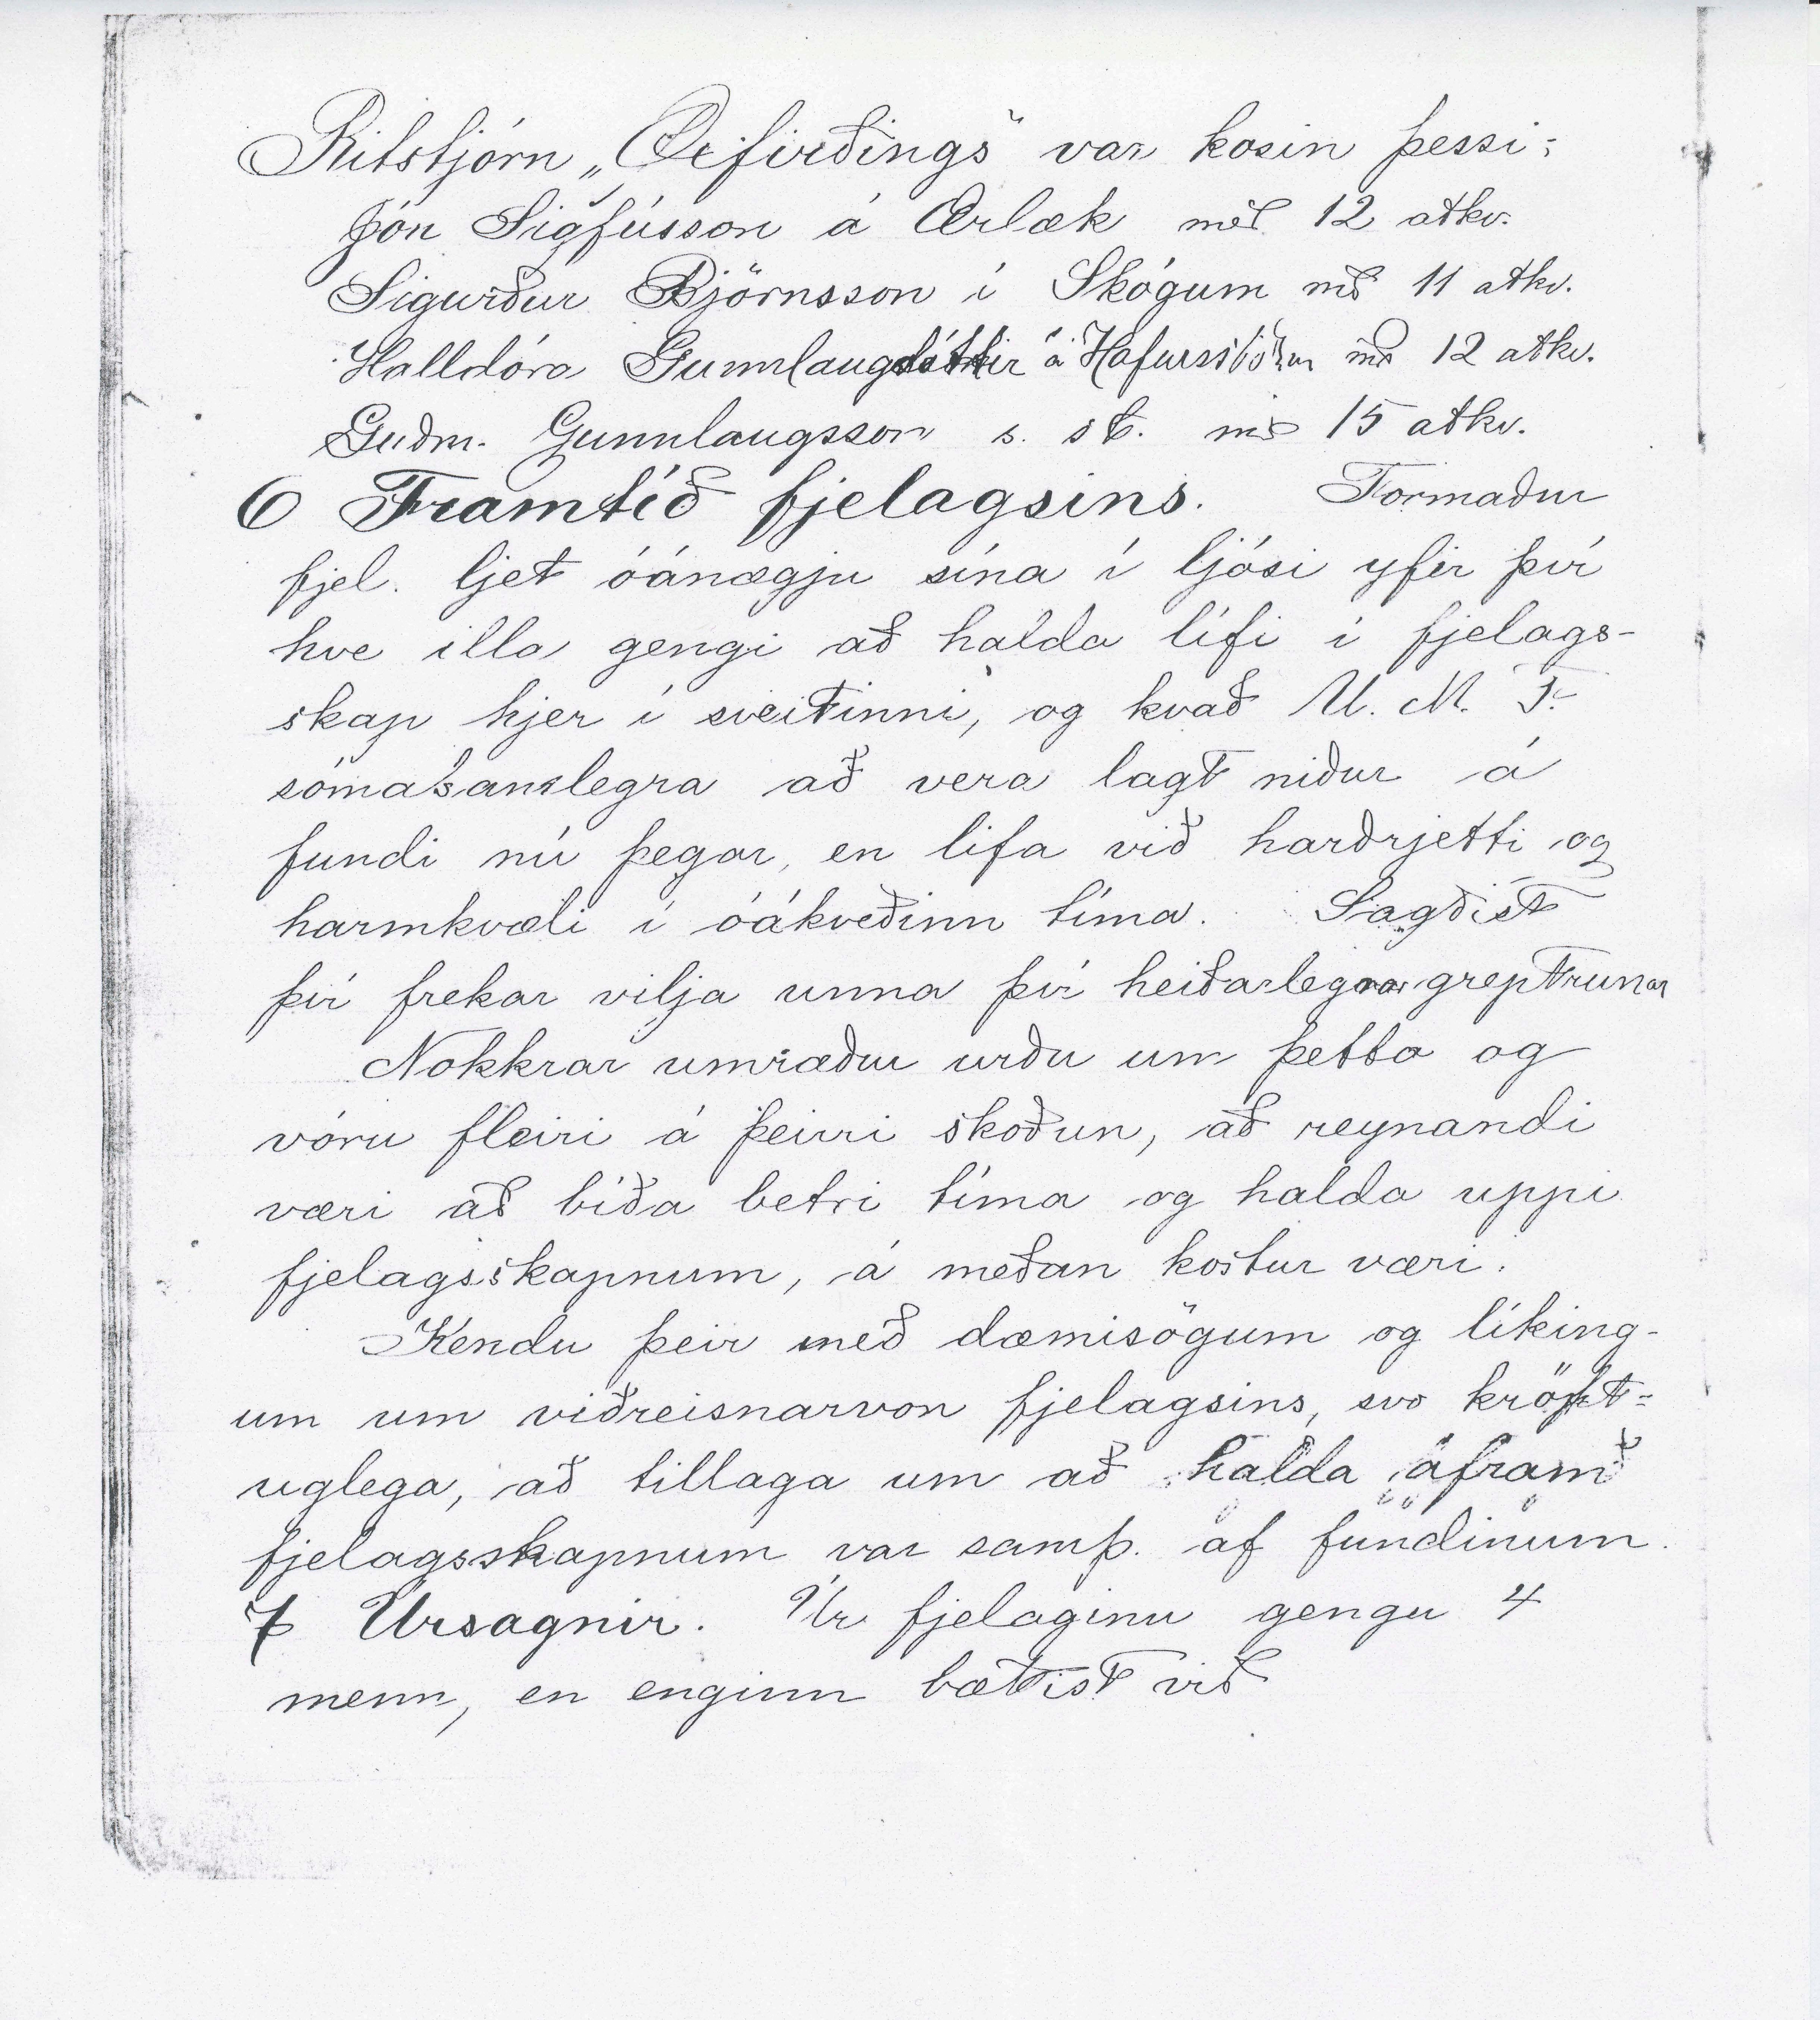 Ritstjórn „Öxfirðings“ var kosin þessi:
Jón Sigfússon á Ærlæk með 12 atkv.
Sigurður Björnsson í Skógum með 11 atkv.
Halldóra Gunnlaugsdóttir á Hafursstöðum með 12 atkv.
Guðm. Gunnlaugsson s. st. með 15 atkv.
6 Framtíð fjelagsins. Formaður
fjel. ljet óánægju sína í ljósi yfir því
hve illa gengi að halda lífi í fjelags-
skap hjer í sveitinni, og kvað U. M. F.
sómasamlegra að vera lagt niður á
fundi nú þegar, en lifa við harðrjetti og
harmkvæli í óákveðinn tíma. Sagðist
því frekar vilja unna því heiðarlegrar greptrunar
Nokkrar umræður urðu um þetta og
vóru fleiri á þeirri skoðun, að reynandi
væri að bíða betri tíma og halda uppi
fjelagsskapnum, á meðan kostur væri.
Kendu þeir með dæmisögum og líking-
um um viðreisnarvon fjelagsins, svo kröft-
uglega, að tillaga um að halda áfram
fjelagsskapnum var samþ. af fundinum.
7 Úrsagnir. Úr fjelaginu gengu 4
menn, en enginn bættist við